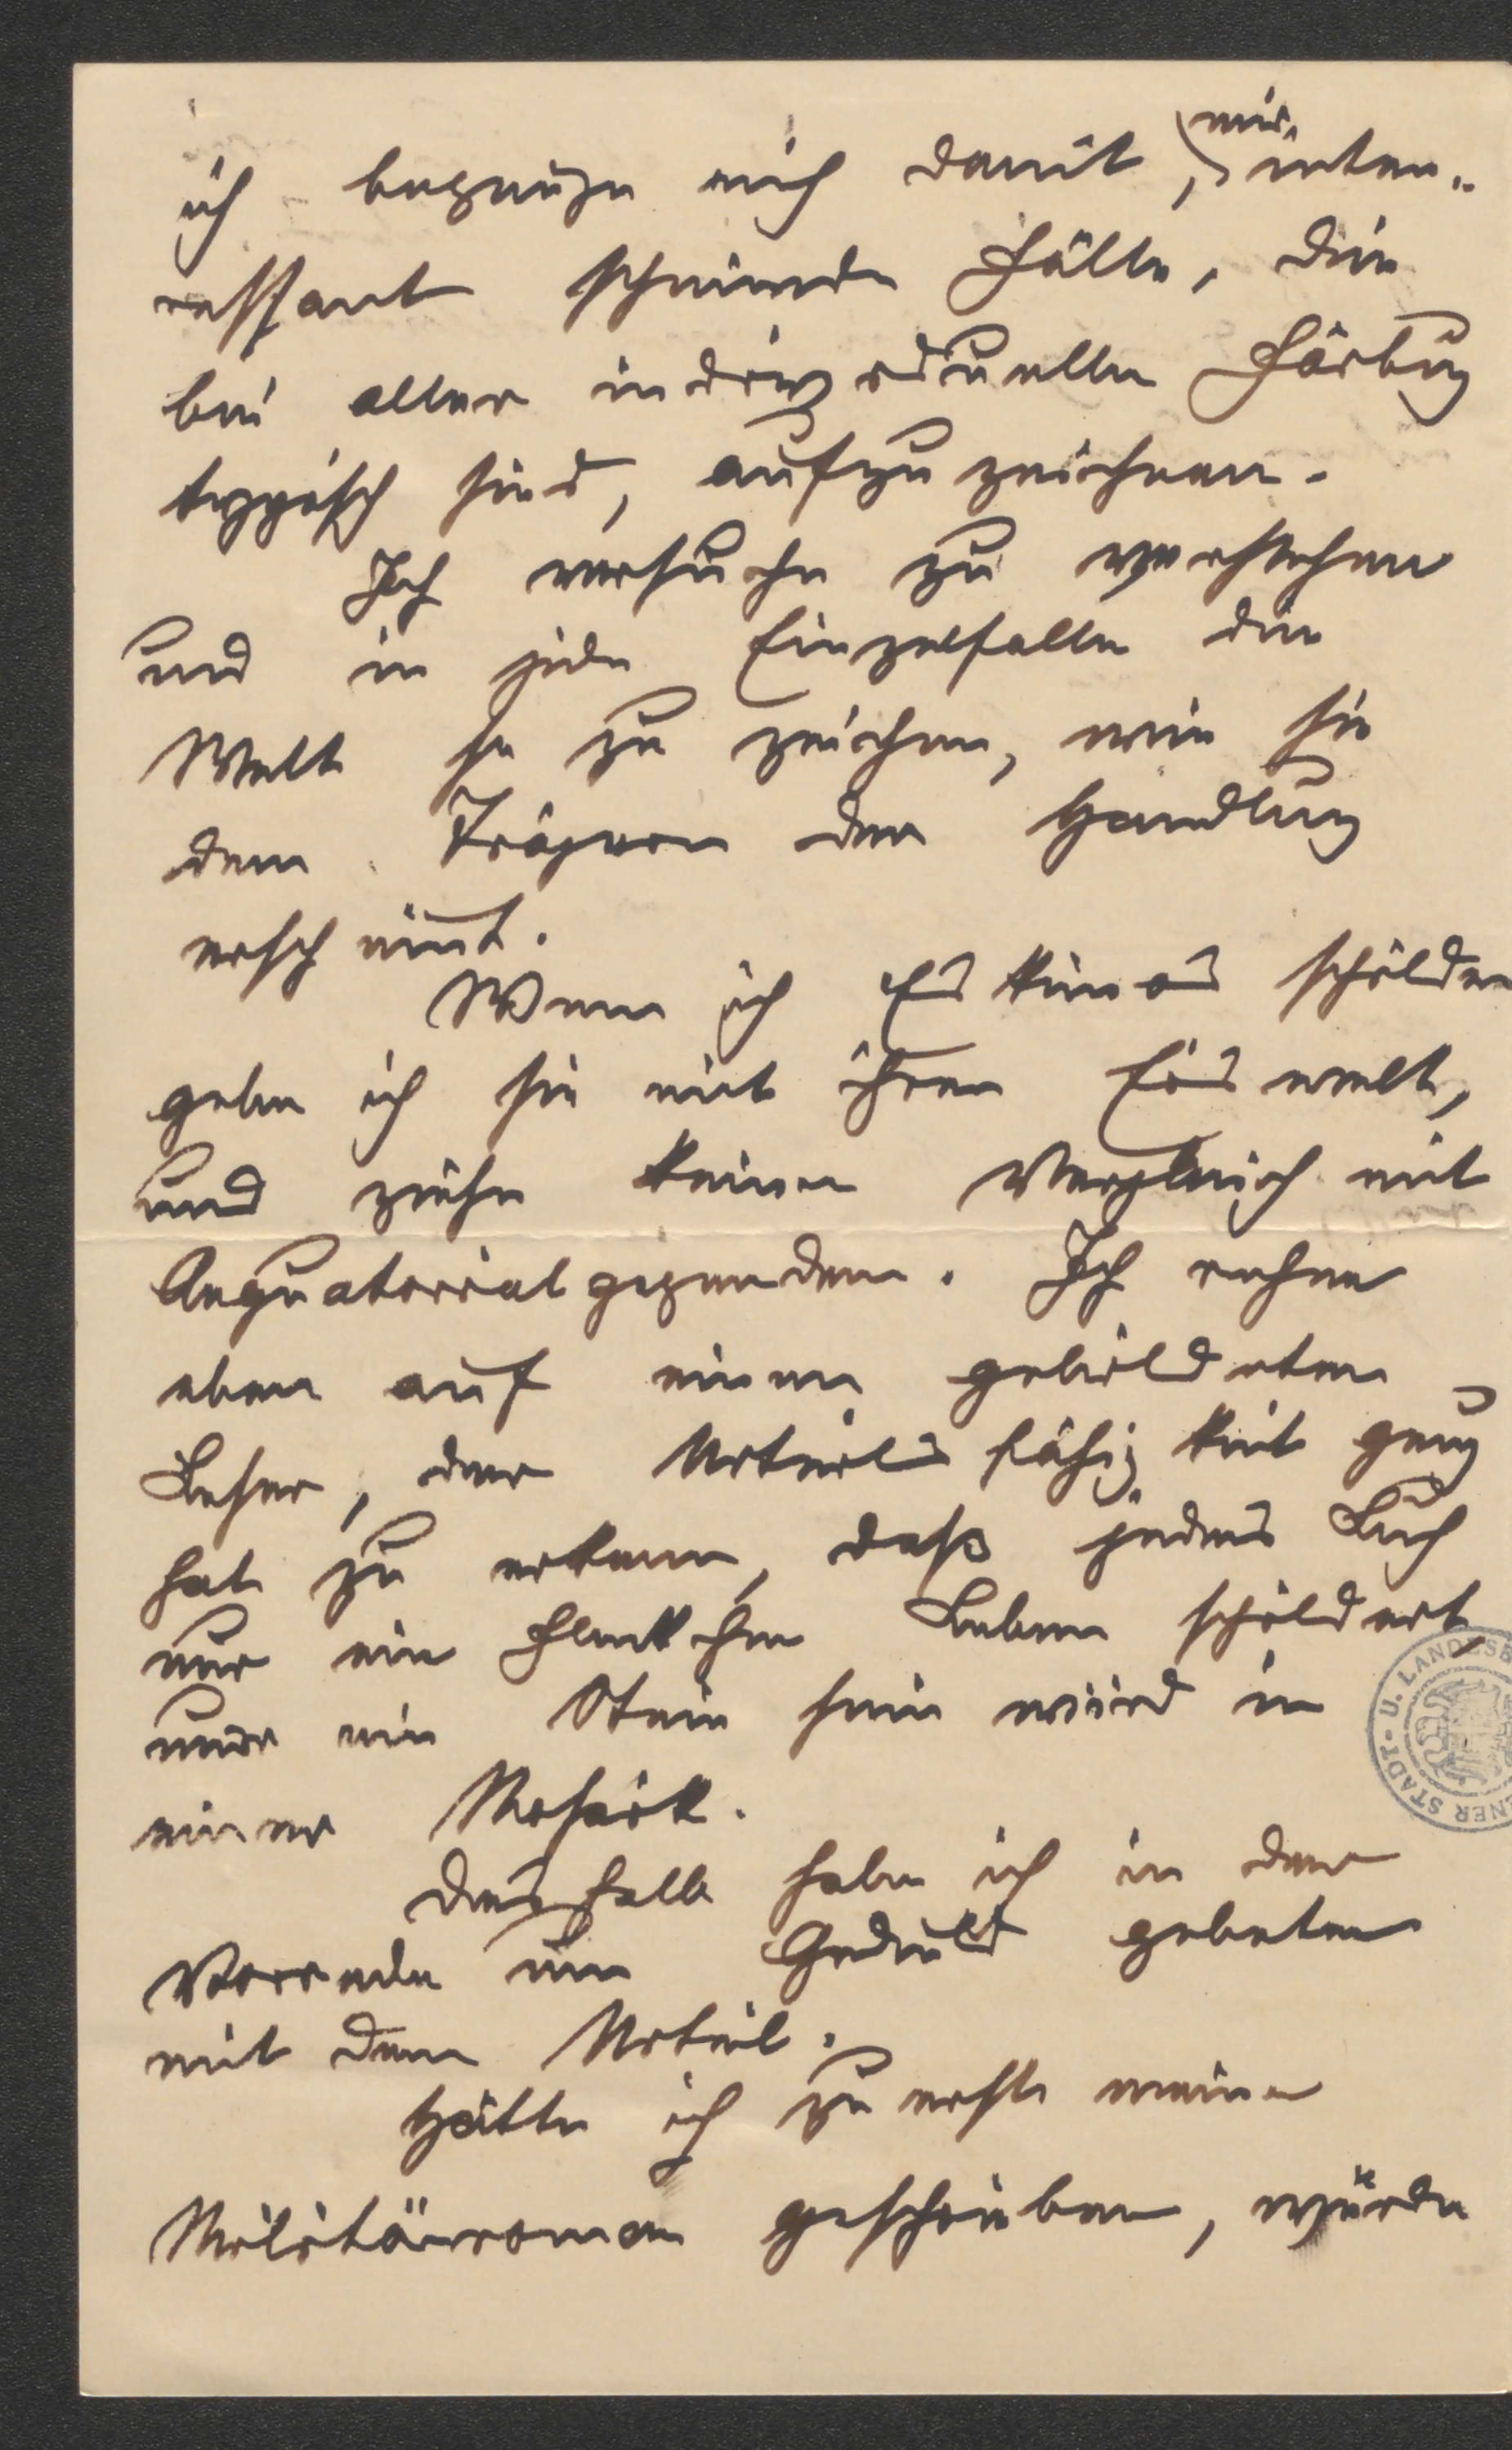 ich begnüge mich damit, mir inte-
ressant scheinende Fälle, die
bei aller individuellen Färbung
typisch sind, aufzuzeichnen.
Ich versuche zu verstehen
und in jede Einzelfalle die
Welt so zu zeichnen, wie sie
dem Trägern der Handlung
erscheint.
Wenn ich Eskimos schildere
gebe ich sie mit ihrer Eiswelt,
und ziehe keinen Vergleich mit
Aequatorialgegenden. Ich rechne
eben auf einen gebildeten
Leser, der Urteilsfähigkeit genug
hat zu erkennen, daß jedes Buch
nur ein Fleckchen Leben schildert,
nur ein Stein sein wird in
einer Mosaik.
Deshalb habe ich in der
Vorrede um Geduld gebeten
mit dem Urteil.
Hätte ich zuerst meinen
Militärroman geschrieben, würde
STADT- U. LANDESB